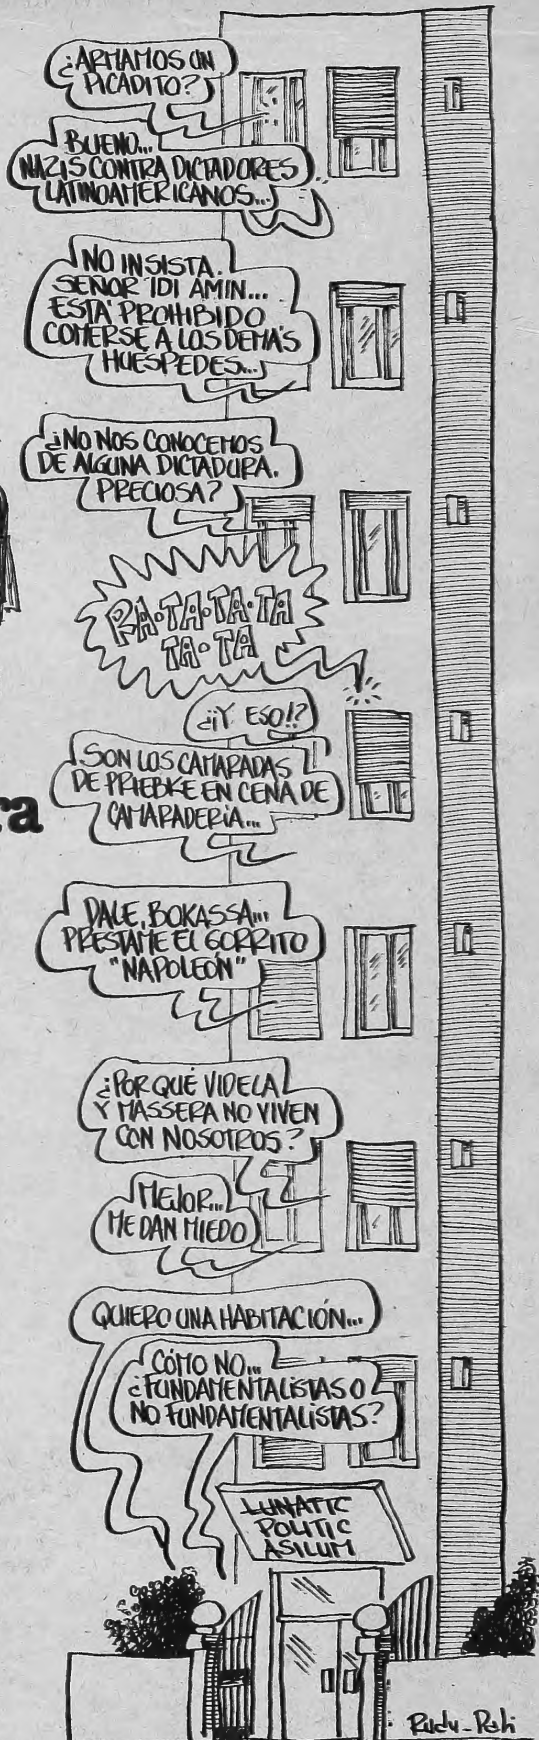 ¿ARMAMOS UN
PICADITO?
BUENO...
NAZIS CONTRA DICTADORES
LATINOAMERICANOS...
NO INSISTA.
SEÑOR IDI AMIN...
ESTÁ PROHIBIDO
COMERSE A LOS DEMÁS
HUESPEDES...
¿NO NOS CONOCEMOS
DE ALGUNA DICTADURA.
PRECIOSA?
RA·TA·TA·TA
TA·TA
¿¡Y ESO!?
SON LOS CAMARADAS
DE PRIEBKE EN CENA DE
CAMARADERÍA...
ra
DALE, BOKASSA...
PRESTAME EL GORRITO
"NAPOLEÓN"
¿POR QUÉ VIDELA
Y MASSERA NO VIVEN
CON NOSOTROS?
MEJOR...
ME DAN MIEDO
QUIERO UNA HABITACIÓN...
CÓMO NO...
¿FUNDAMENTALISTAS O
NO FUNDAMENTALISTAS?
LUNATIC
POLITIC
ASILUM
Rudy-Pati